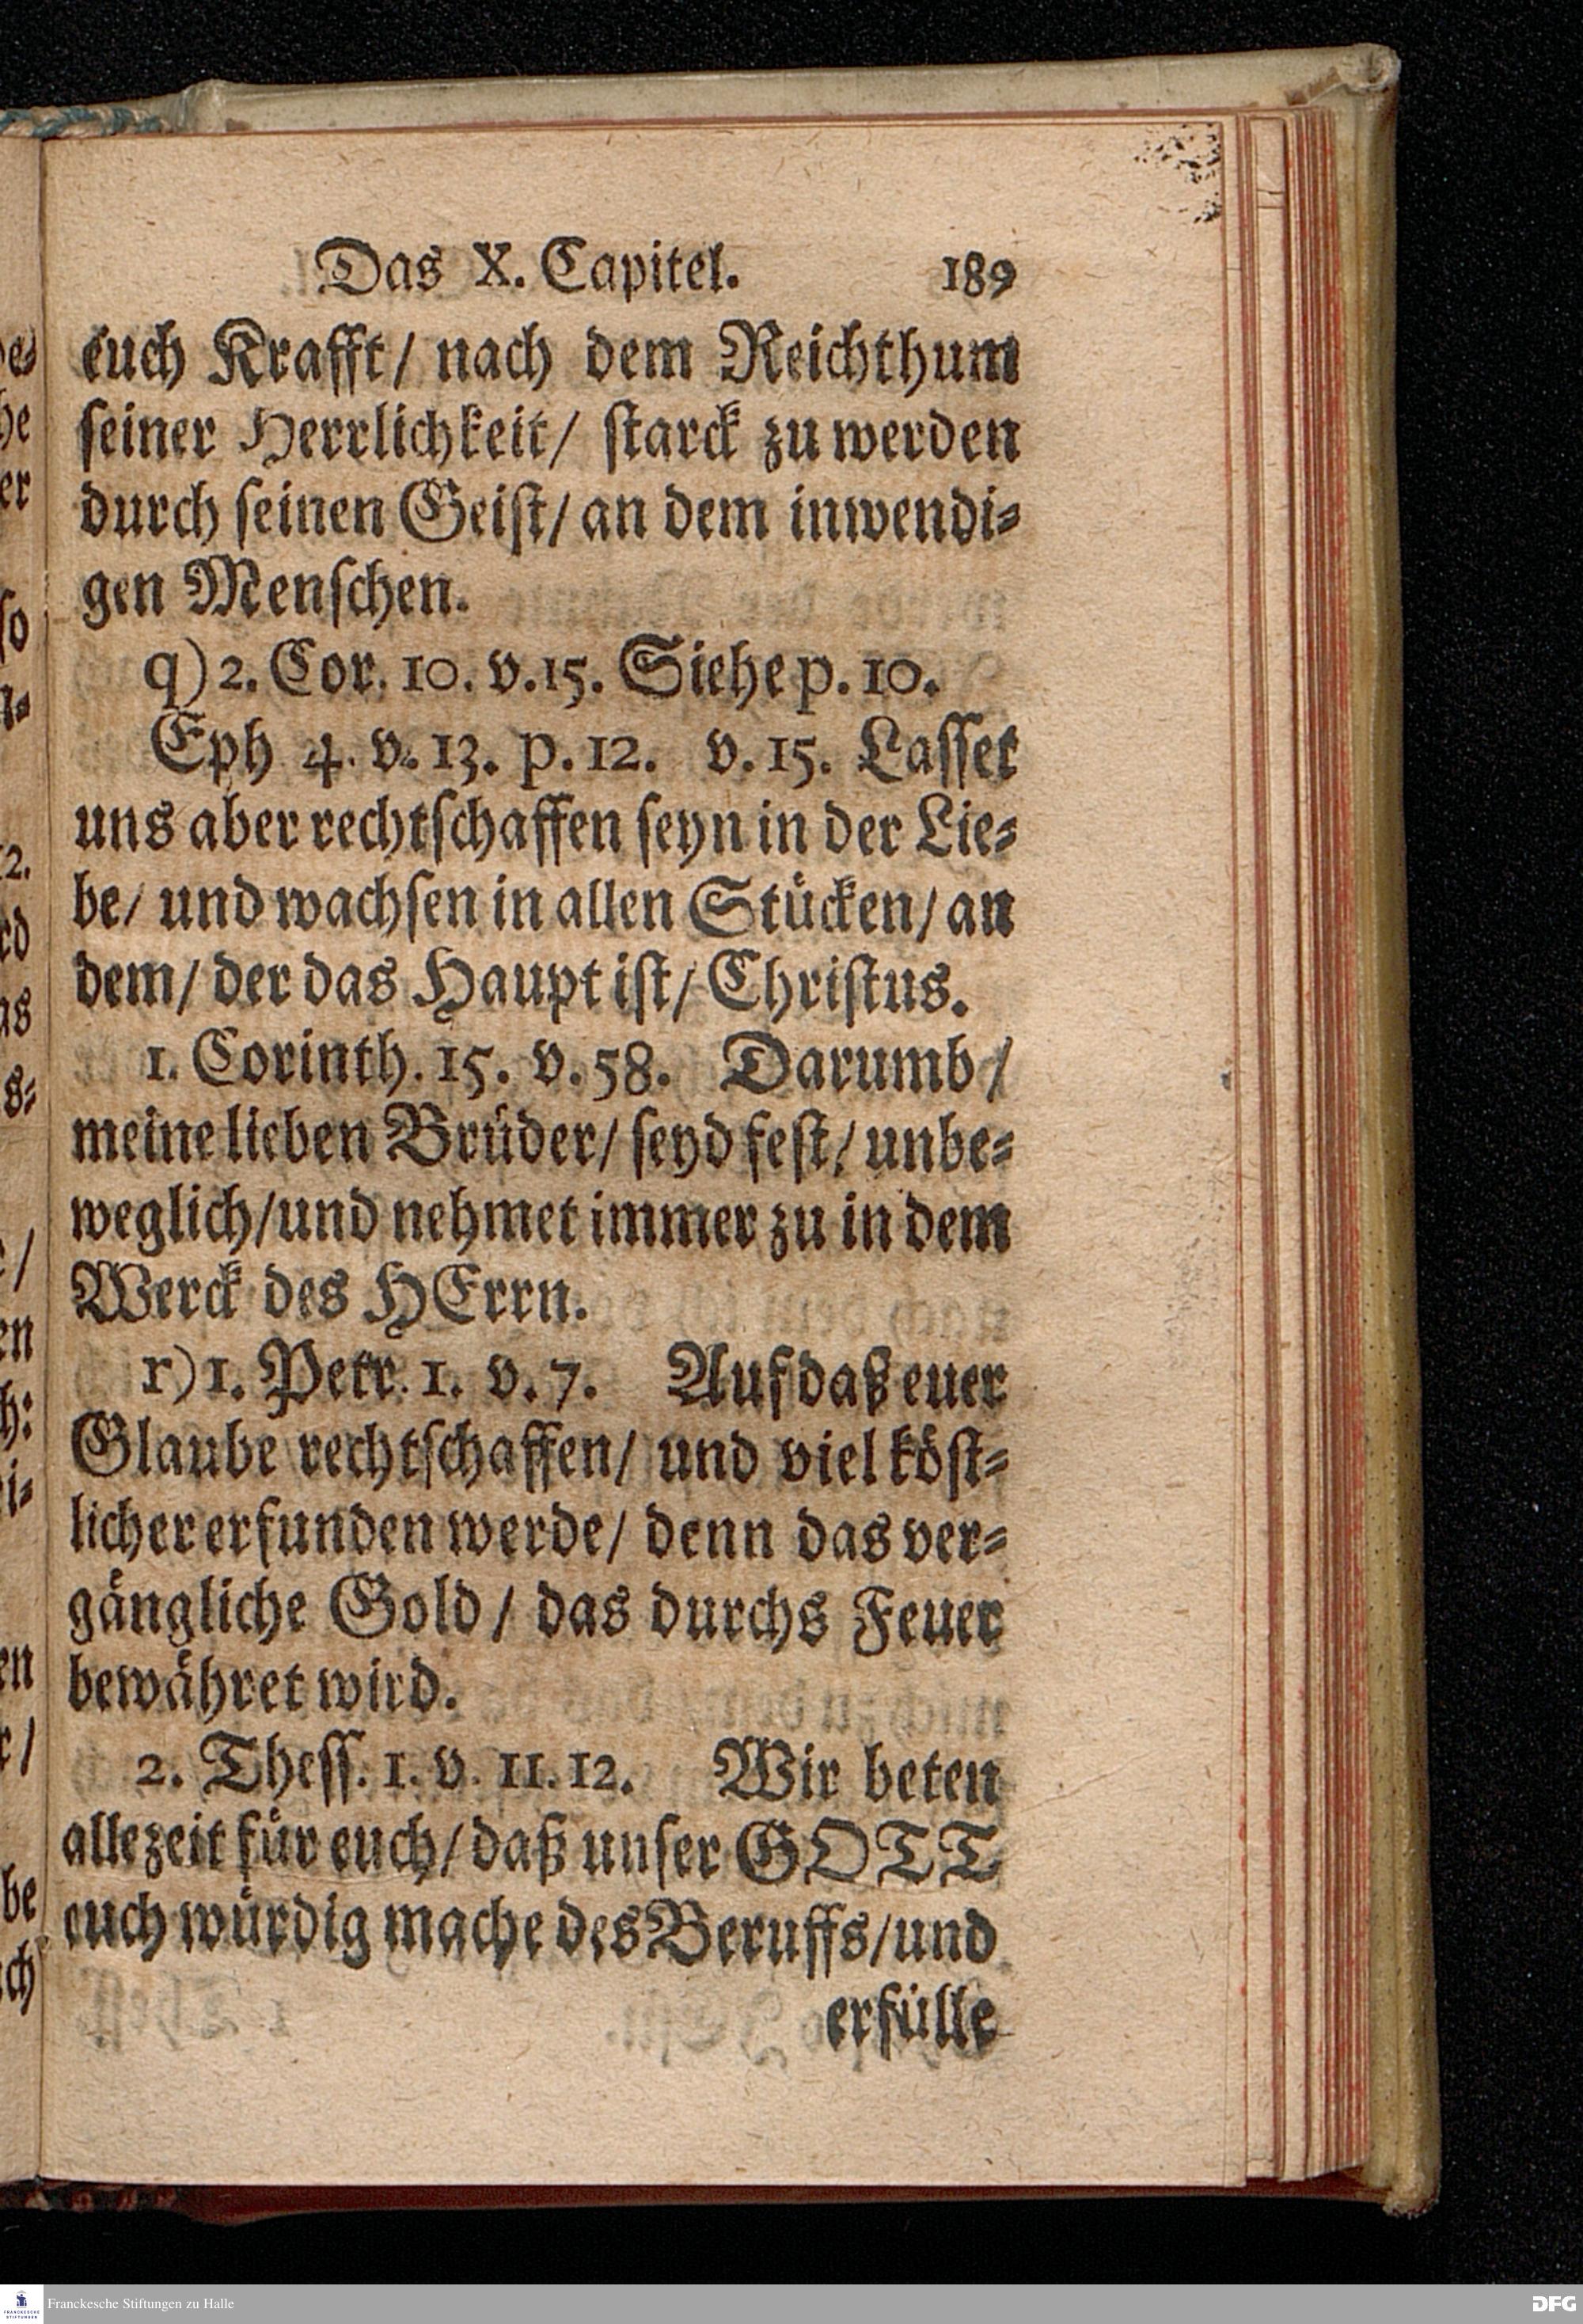 Das X. Capitel. 189
euch Krafft/ nach dem Reichthum
seiner Herrlichkeit/ starck zu werden
durch seinen Geist/ an dem inwendi-
gen Menschen.
q) 2. Cor. 10. v. 15. Siehe p. 10.
Eph 4. v. 13. p. 12. v. 15. Lasset
uns aber rechtschaffen seyn in der Lie-
be/ und wachsen in allen Stücken/ an
dem/ der das Haupt ist/ Christus.
1. Corinth. 15. v. 58. Darumb/
meine lieben Brüder/ seyd fest/ unbe-
weglich/ und nehmet immer zu in dem
Werck des HErrn.
r) 1. Petr. 1. v. 7. Auf daß euer
Glaube rechtschaffen/ und viel köst-
licher erfunden werde/ denn das ver-
gängliche Gold/ das durchs Feuer
bewähret wird.
2. Thess. 1. v. 11. 12. Wir beten
allezeit für euch/ daß unser GOTT
euch würdig mache des Beruffs/ und
erfülle
Franckesche Stiftungen zu Halle
DFG